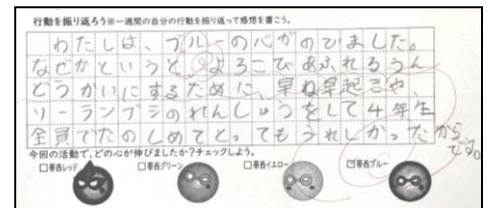 行動を振り返ろう※一週間の自分の行動を振り返って感想を書こう。
わたしは、ブルーの心がのびました。
なぜかというと、よろこびあふれるうん
どうかいにするために、早ね早起きや、
ソーランブシのれんしゅうをして4年生
全員でたのしめてとってもうれしかったから
です。
今回の活動で、どの心が伸びましたか？チェックしよう。
□春西レッド □春西グリーン □春西イエロー ☑春西ブルー